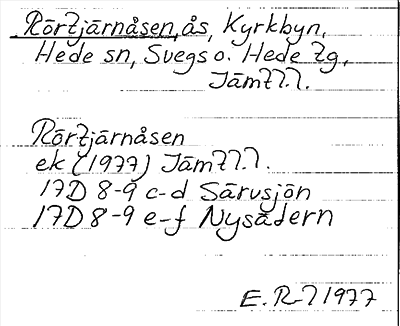 Rörtjärnåsen, ås, Kyrkbyn,
Hede sn, Svegs o. Hede tg,
Jämtl.l.
Rörtjärnåsen
ek (1977) Jämtl.l.
17D 8-9 c-d Särvsjön
17D 8-9 e-f Nysätern
E.R-l 1977